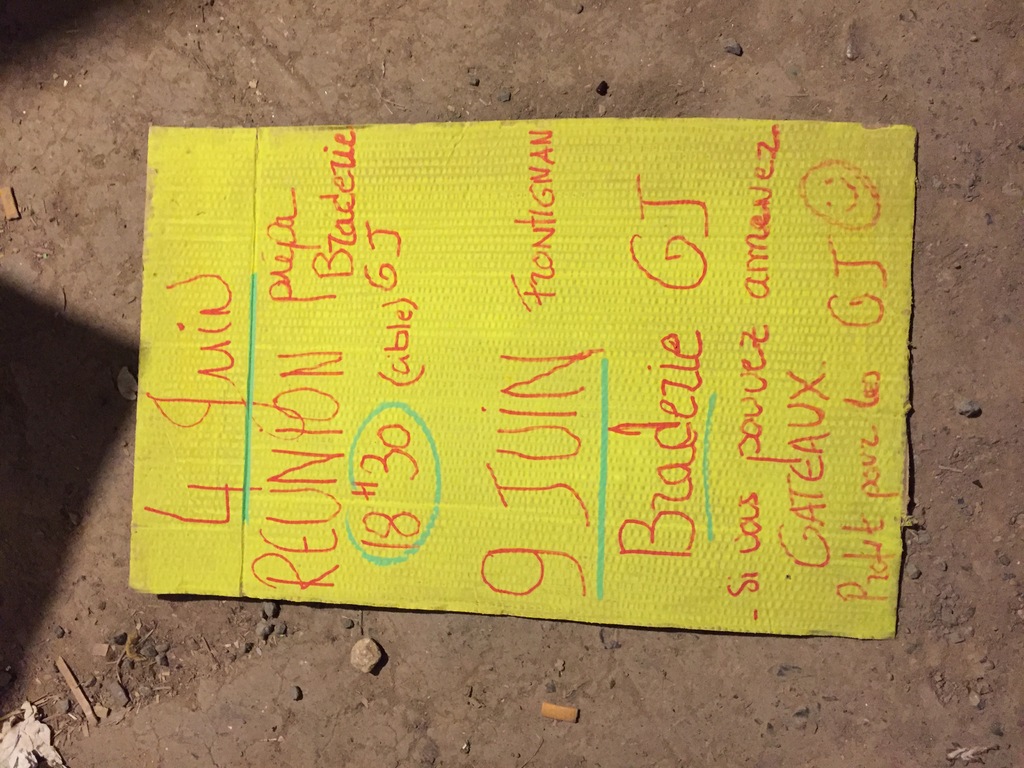 4 Juin
REUNION prepa
Braderie
18H30 (cible) GJ
9 JUIN FRONTIGNAN
Braderie GJ
- Si vous pouvez amenez
GATEAUX.
Profit pour les GJ